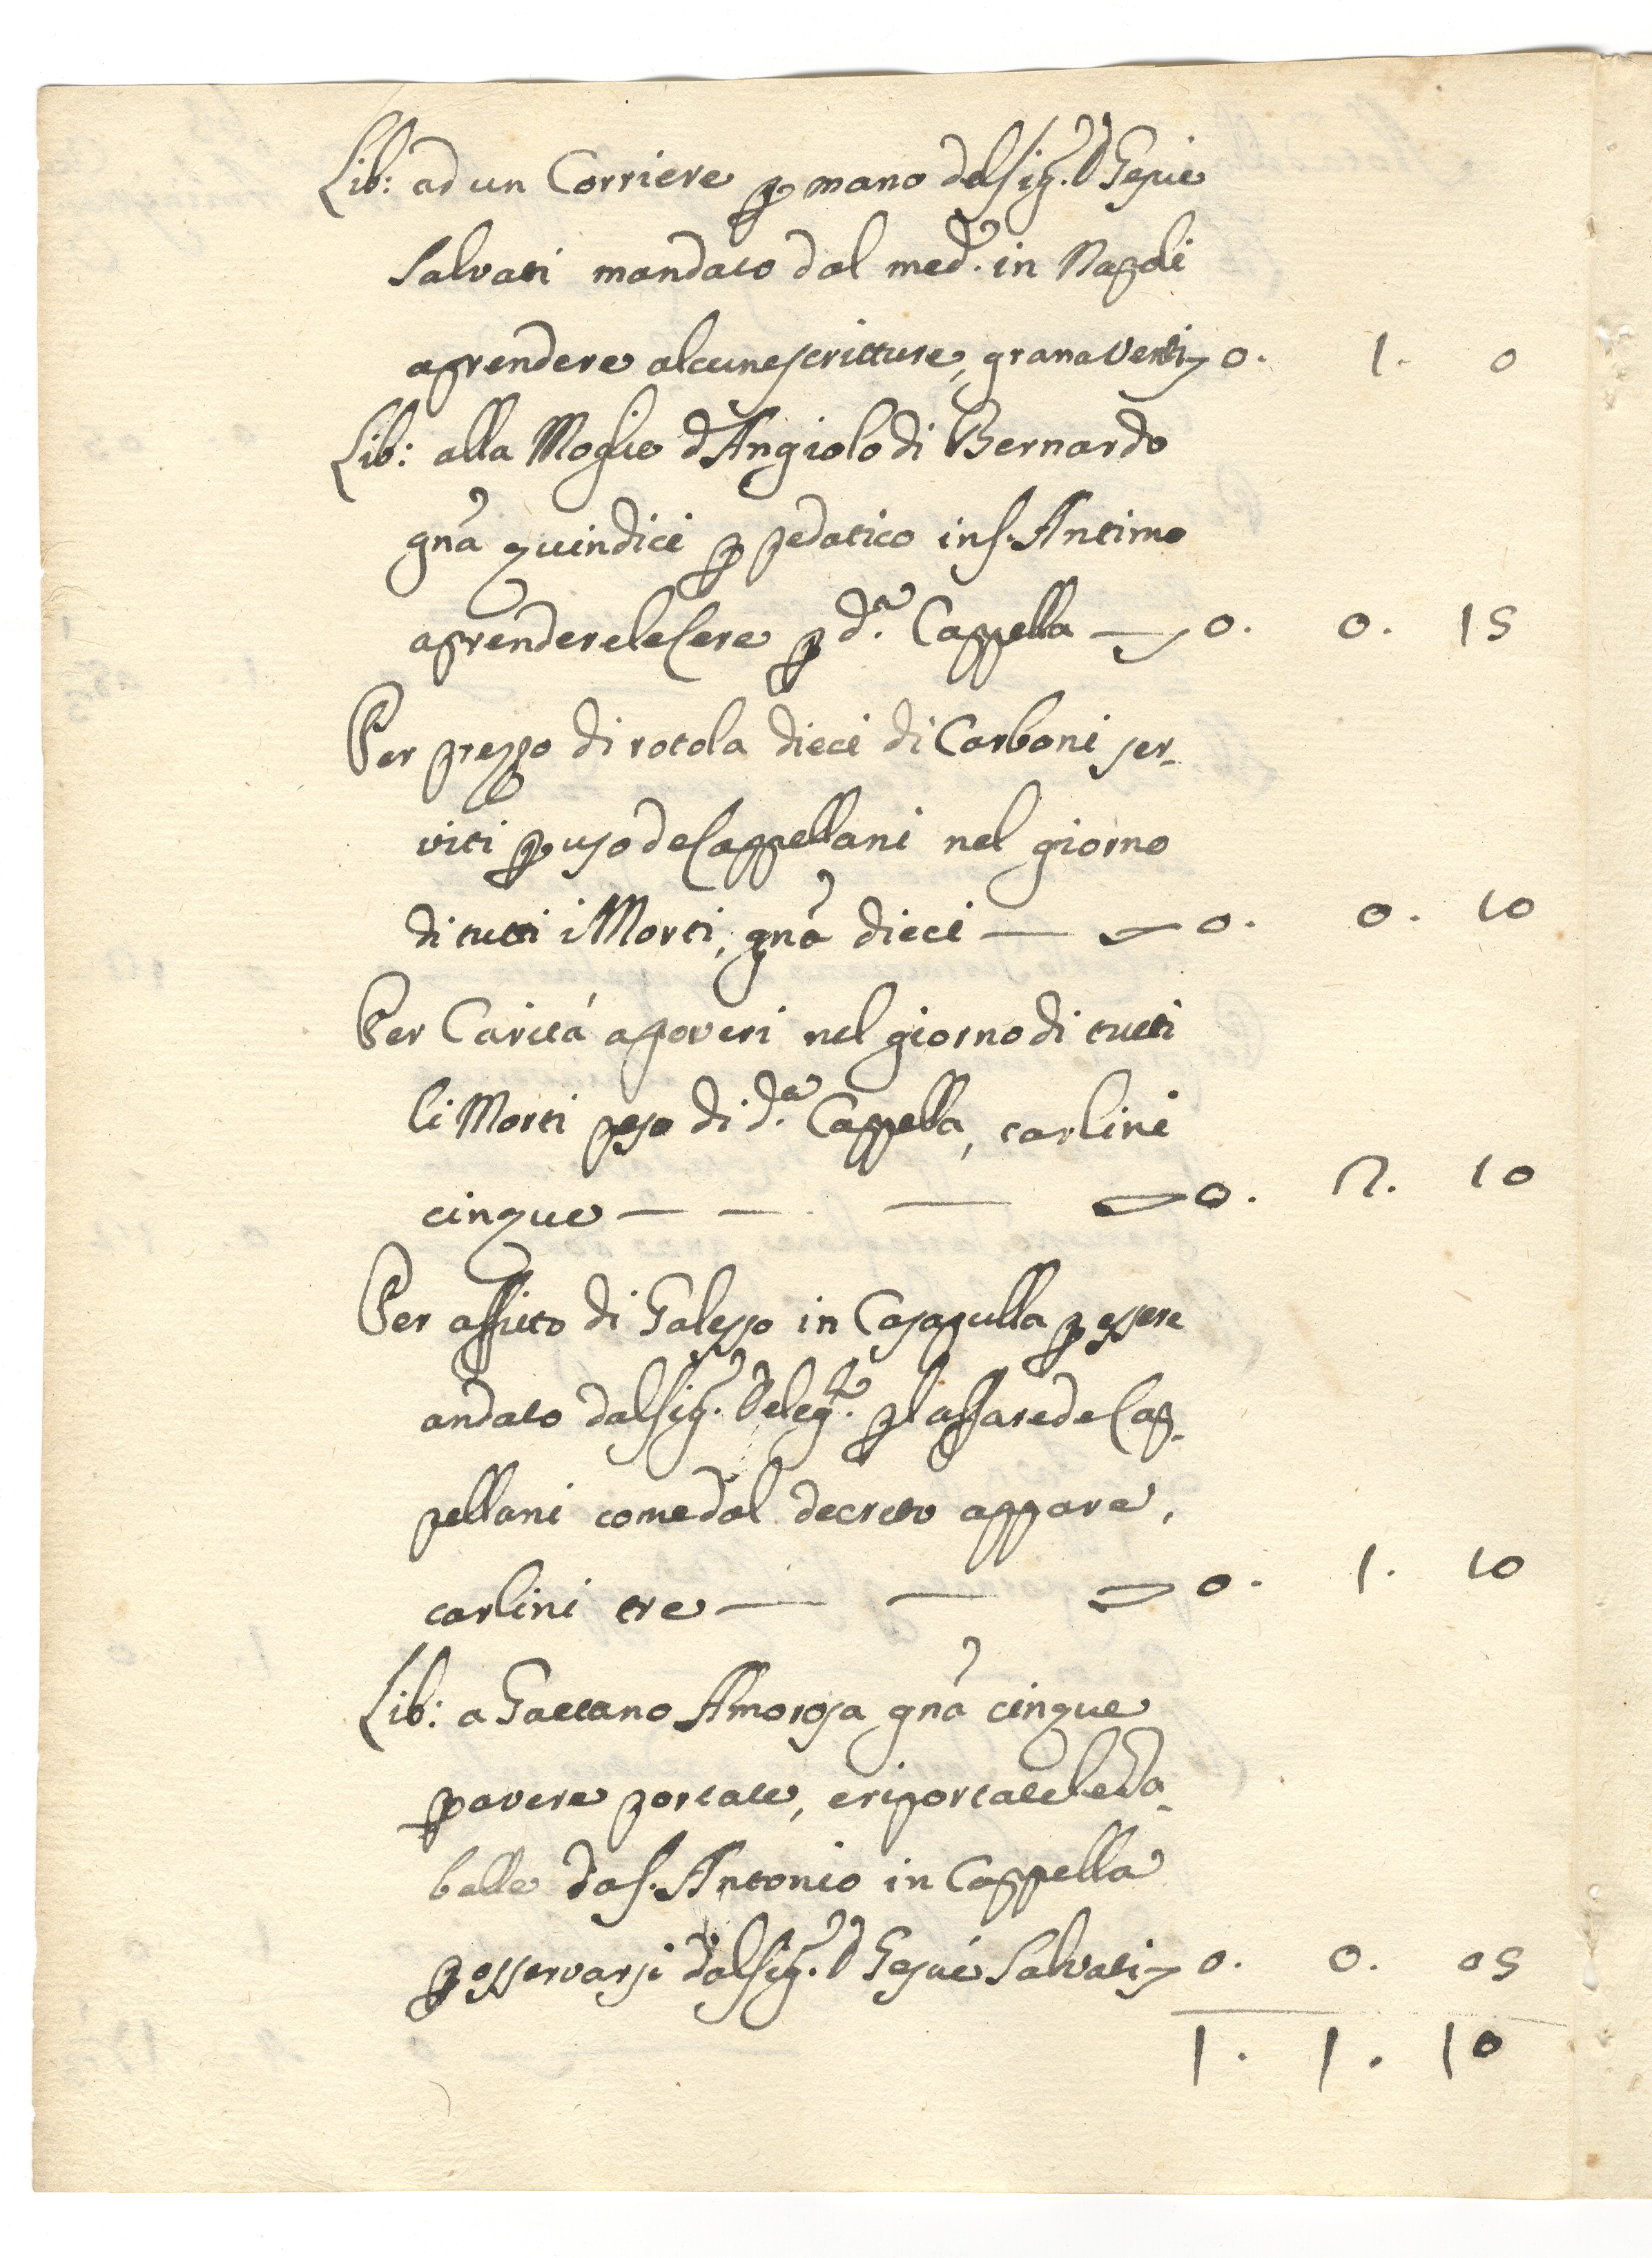 Lib: ad un Corriere p mano del Sig.r D Gesuè
Salvati mandato dal med.o in Napoli
a prendere alcune scritture, grana venti 0. 1. 0
Lib: alla Moglie d'Angiolo di Bernardo
gna quindici p pedatico in S. Antimo
a prendere le Cere p d.a Cappella — 0. 0. 15
Per prezzo di rotola dieci di Carboni ser-
viti p uso de Cappellani nel giorno
di tutti i Morti, gna dieci — 0. 0. 10
Per Carità a poveri nel giorno di tutti
li Morti peso di d.a Cappella, carlini
cinque — — — 0. 2. 10
Per affitto di Galesso in Casapulla p essere
andato dal Sig.r Deleg.to p l'affare de Cap-
pellani come dal decreto appare,
carlini tre — — 0. 1. 10
Lib: a Gaetano Amorosa gna cinque
p avere portate, e riportate le Ta-
belle da S. Antonio in Cappella
p osservarsi dal Sig.r D Gesuè Salvati 0. 0. 05
1. 1. 10